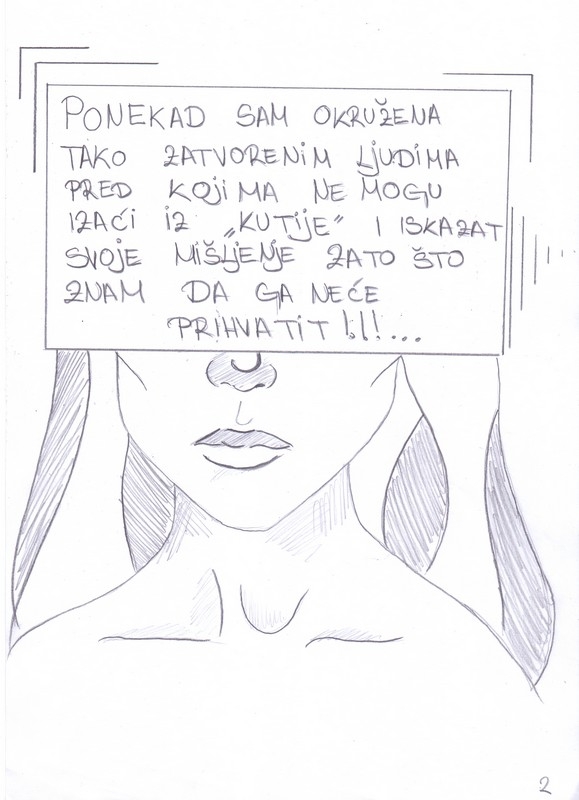 PONEKAD SAM OKRUŽENA
TAKO ZATVORENIM LJUDIMA
PRED KOJIMA NE MOGU
IZAĆI IZ „KUTIJE“ I ISKAZAT
SVOJE MIŠLJENJE ZATO ŠTO
ZNAM DA GA NEĆE
PRIHVATIT !!!...
2